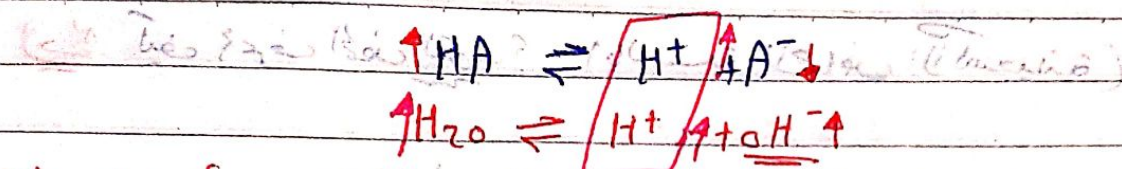 ↑HA ⇌ H+ ↑+ A- ↓
↑H2O ⇌ H+ ↑+ OH- ↑